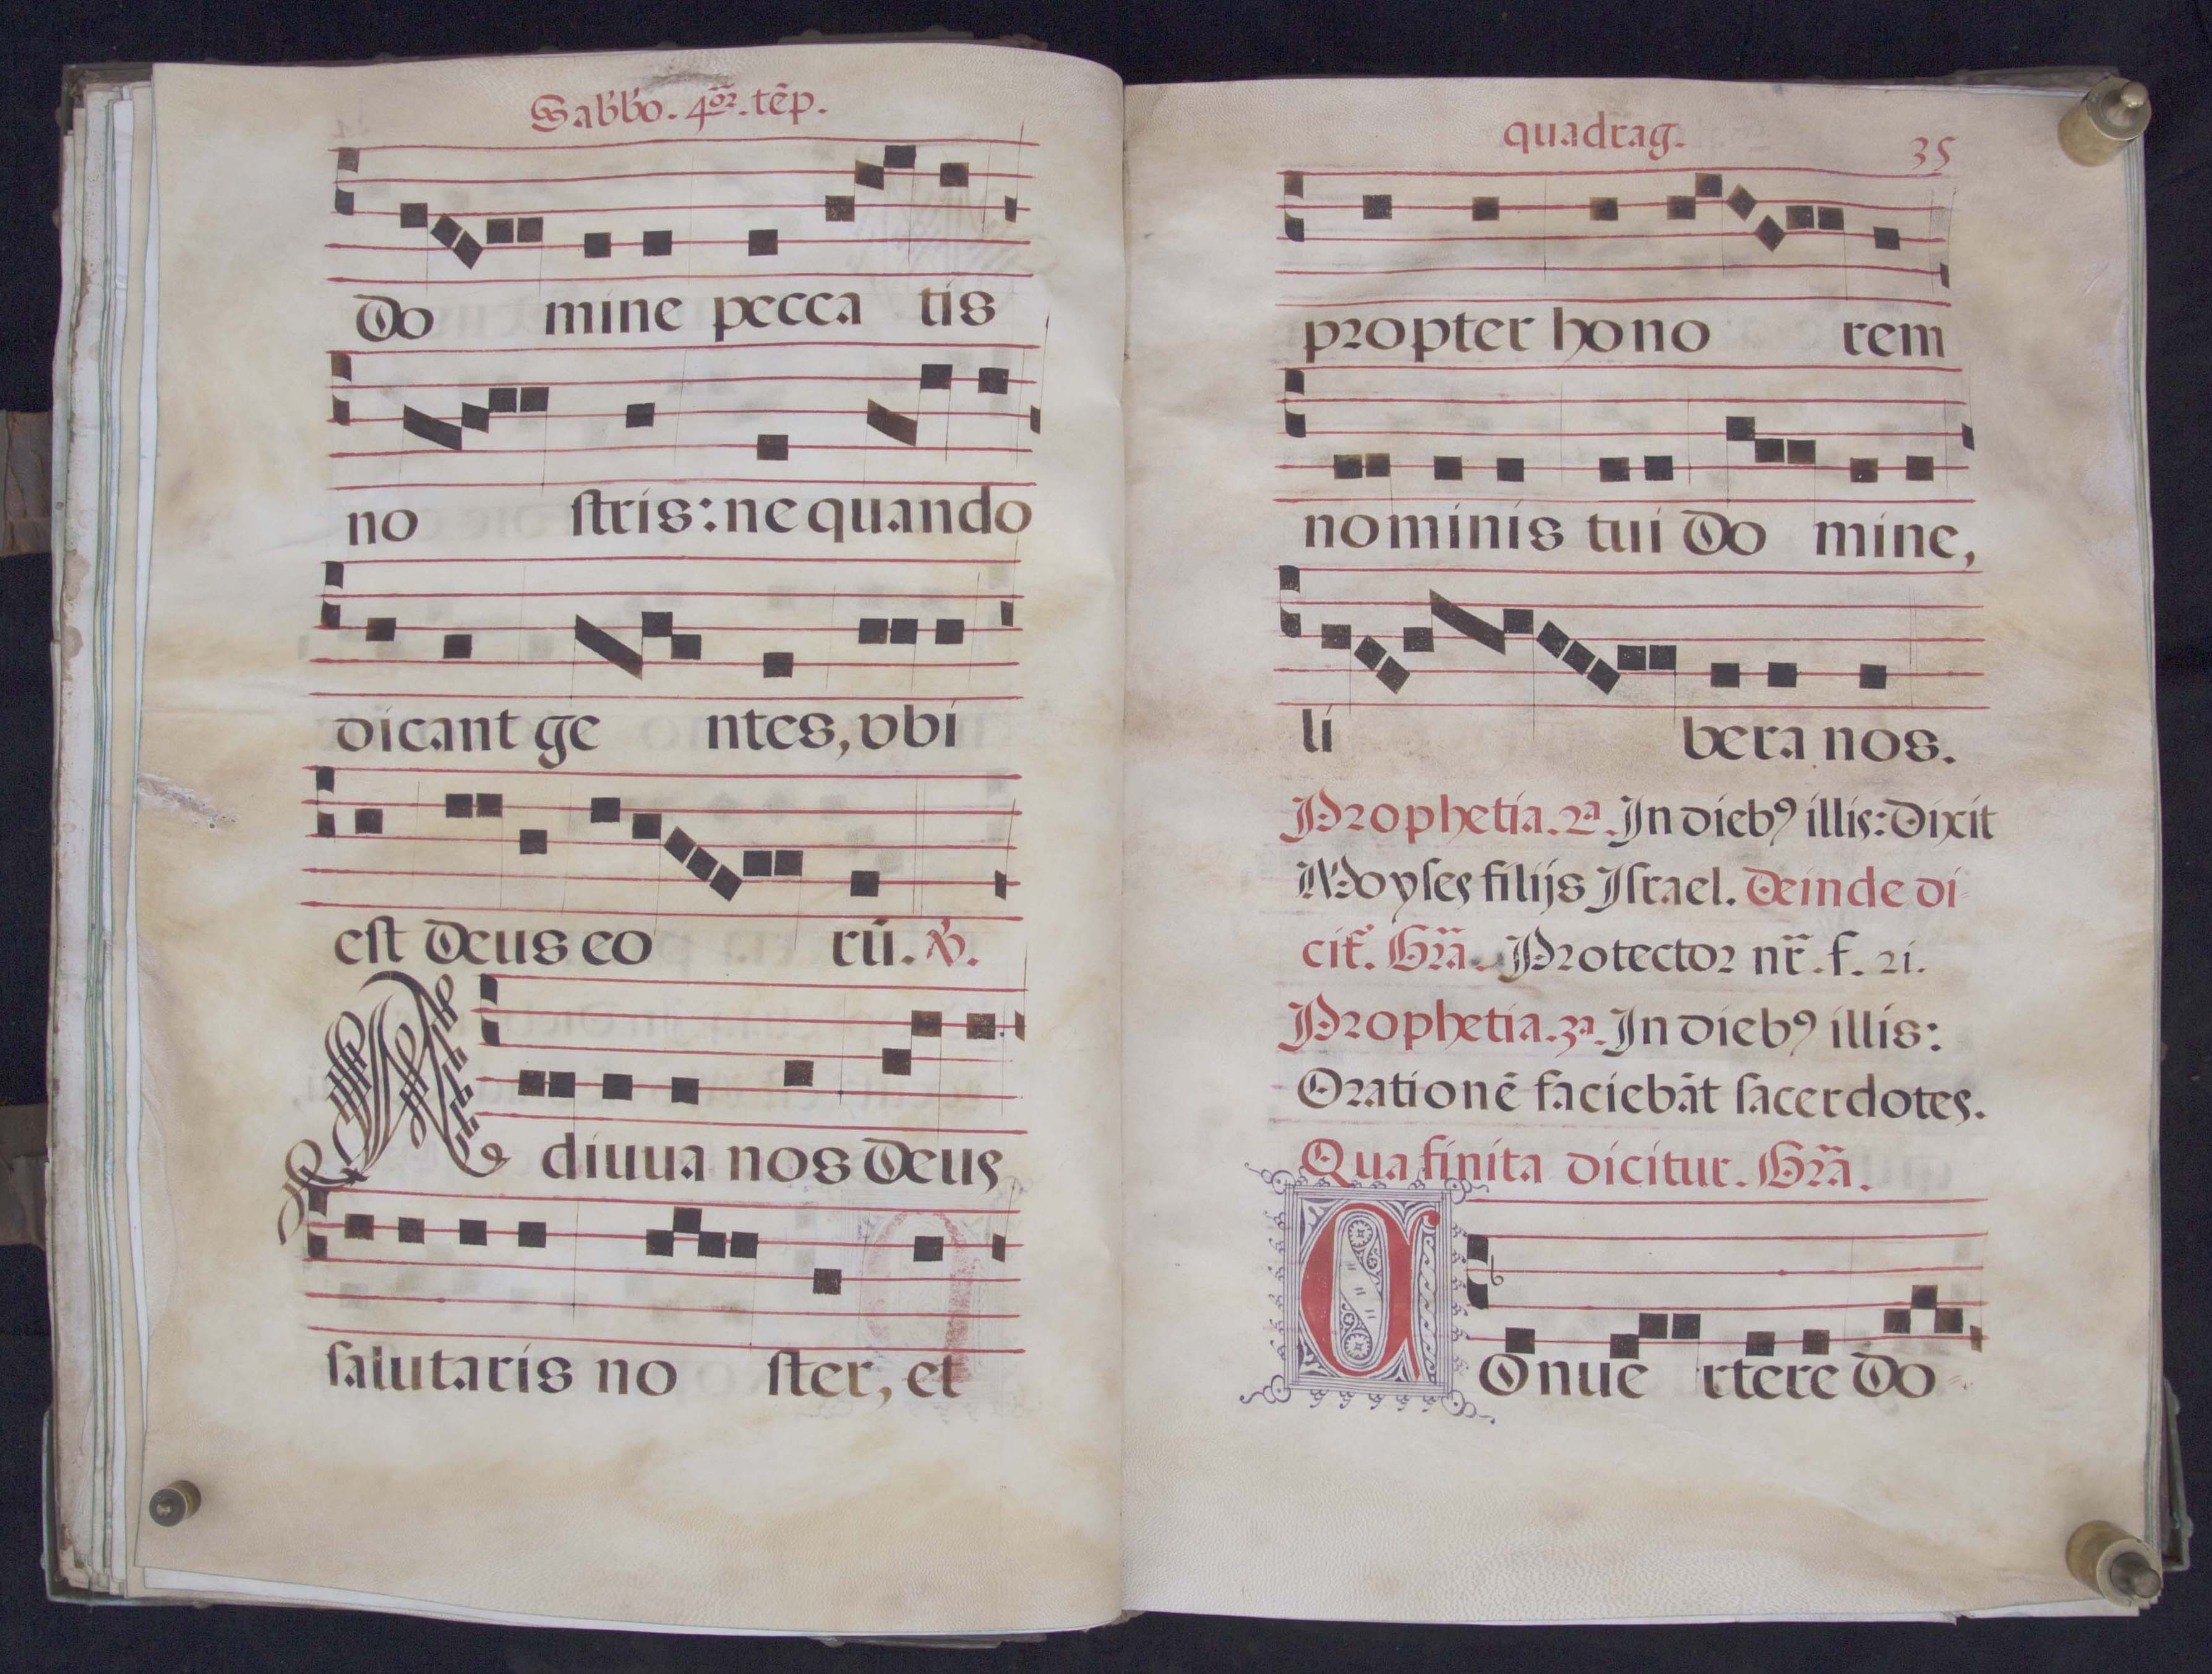 Sabb̃o. 4or. tẽp.
Do mine pecca tis
no ſtris: ne quando
dicant ge ntes, vbi
est Deus eo rũ. ℣.
A diuua nos Deus
ſalutaris no ſter, et
quadrag. 35
propter hono rem
nominis tui Do mine,
li bera nos.
Prophetia. 2a. In dieb9 illis: Dixit
Moyſes filijs Iſrael. Deinde di
cit̃. Gr̃a. Protector nr̃. f. 21.
Prophetia. 3a. In dieb9 illis:
Orationẽ faciebãt ſacerdotes.
Qua finita dicitur. Gr̃a.
C Onue rtere Do